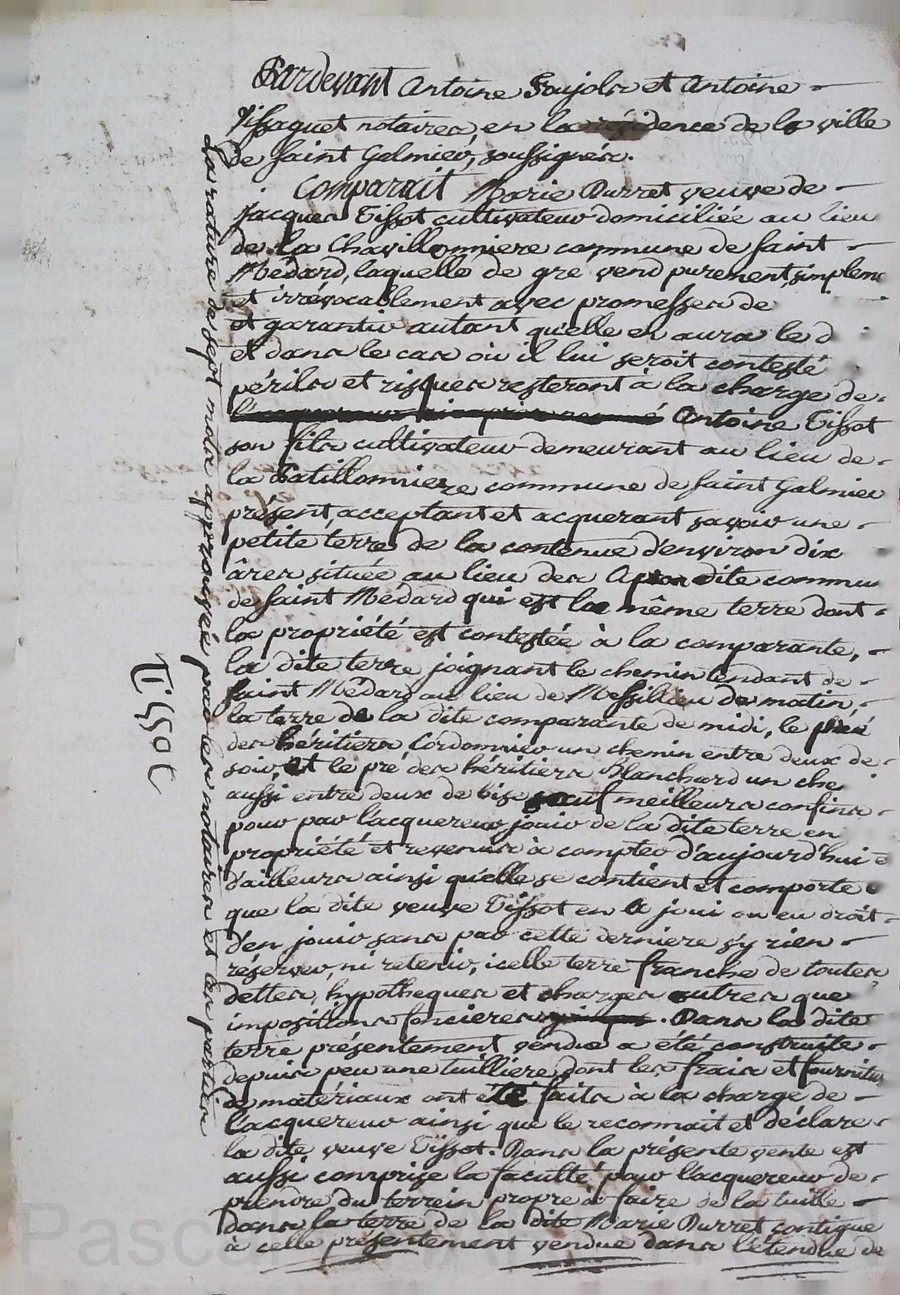 Pardevant Antoine Soujola et Antoine
Tissaquet notaires, en la résidence de la ville
de Saint Galmier, soussignés.
Comparait Marie Durret veuve de
Jacques Tissot cultivateur domiciliée au lieu
de la Chavillonniere commune de Saint
Médard, laquelle de gré vend purement, simplem
et irrévocablement avec promesses de
et garantir autant qu'elle en aura le d
et dans le cas où il lui seroit contesté
périls et risques resteront à la charge de
Antoine Tissot
son fils cultivateur demeurant au lieu de
la Batillonniere commune de Saint Galmier
présent acceptant et acquerant savoir une
petite terre de la contenue d'environ dix
âres située au lieu des dite commu
de Saint Médard qui est la même terre dont
la propriété est contestée à la comparante,
la dite terre joignant le chemin tendant de
Saint Médard au lieu de Messilieu de matin,
la terre de la dite comparante de midi, le pré
des héritiers Cordonnier un chemin entre deux de
soir, et le pré des héritiers Blanchard un che
aussi entre deux de bise sauf meilleurs confins
pour par lacquereur jouir de la dite terre en
propriété et revenus à compter d'aujourd'hui e
d'ailleurs ainsi qu'elle se contient et comporte e
que la dite veuve Tissot en a joui ou eu droit
d'en jouir sans par cette derniere s'y rien
réserver, ni retenir, icelle terre franche de toutes
dettes, hypotheques et charges autres que
impositions foncieres. Dans la dite
terre présentement vendue a été construite
depuis peu une tuilliere dont les frais et fournitu
de matériaux ont été faits à la charge de
lacquereur ainsi que le reconnait et déclare
la dite veuve Tissot. Dans la présente vente est
aussi comprise la faculté pour lacquereur de
prendre du terrein propre à faire de la tuille
dans la terre de la dite Marie Durret contigue
à celle présentement vendue dans l'étendue de
la rature de sept mots approuvée par les notaires et les parties
Tissot
Pasca